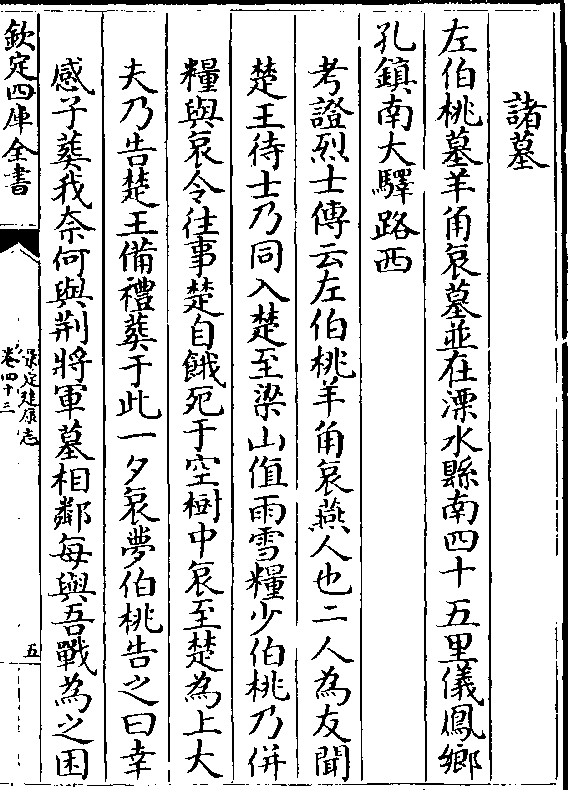 諸墓
左伯桃墓羊角哀墓並在溧水縣南四十五里儀鳳鄉
孔鎮南大驛路西
考證烈士傳云左伯桃羊角哀燕人也二人為友聞
楚王待士乃同入楚至梁山值雨雪糧少伯桃乃併
糧與哀令往事楚自餓死于空樹中哀至楚為上大
夫乃告楚王備禮葬于此一夕哀夢伯桃告之曰幸
感子葬我奈何與荆將軍墓相鄰每與吾戰為之困
欽定四庫全書
景定建康志
卷四十三
五